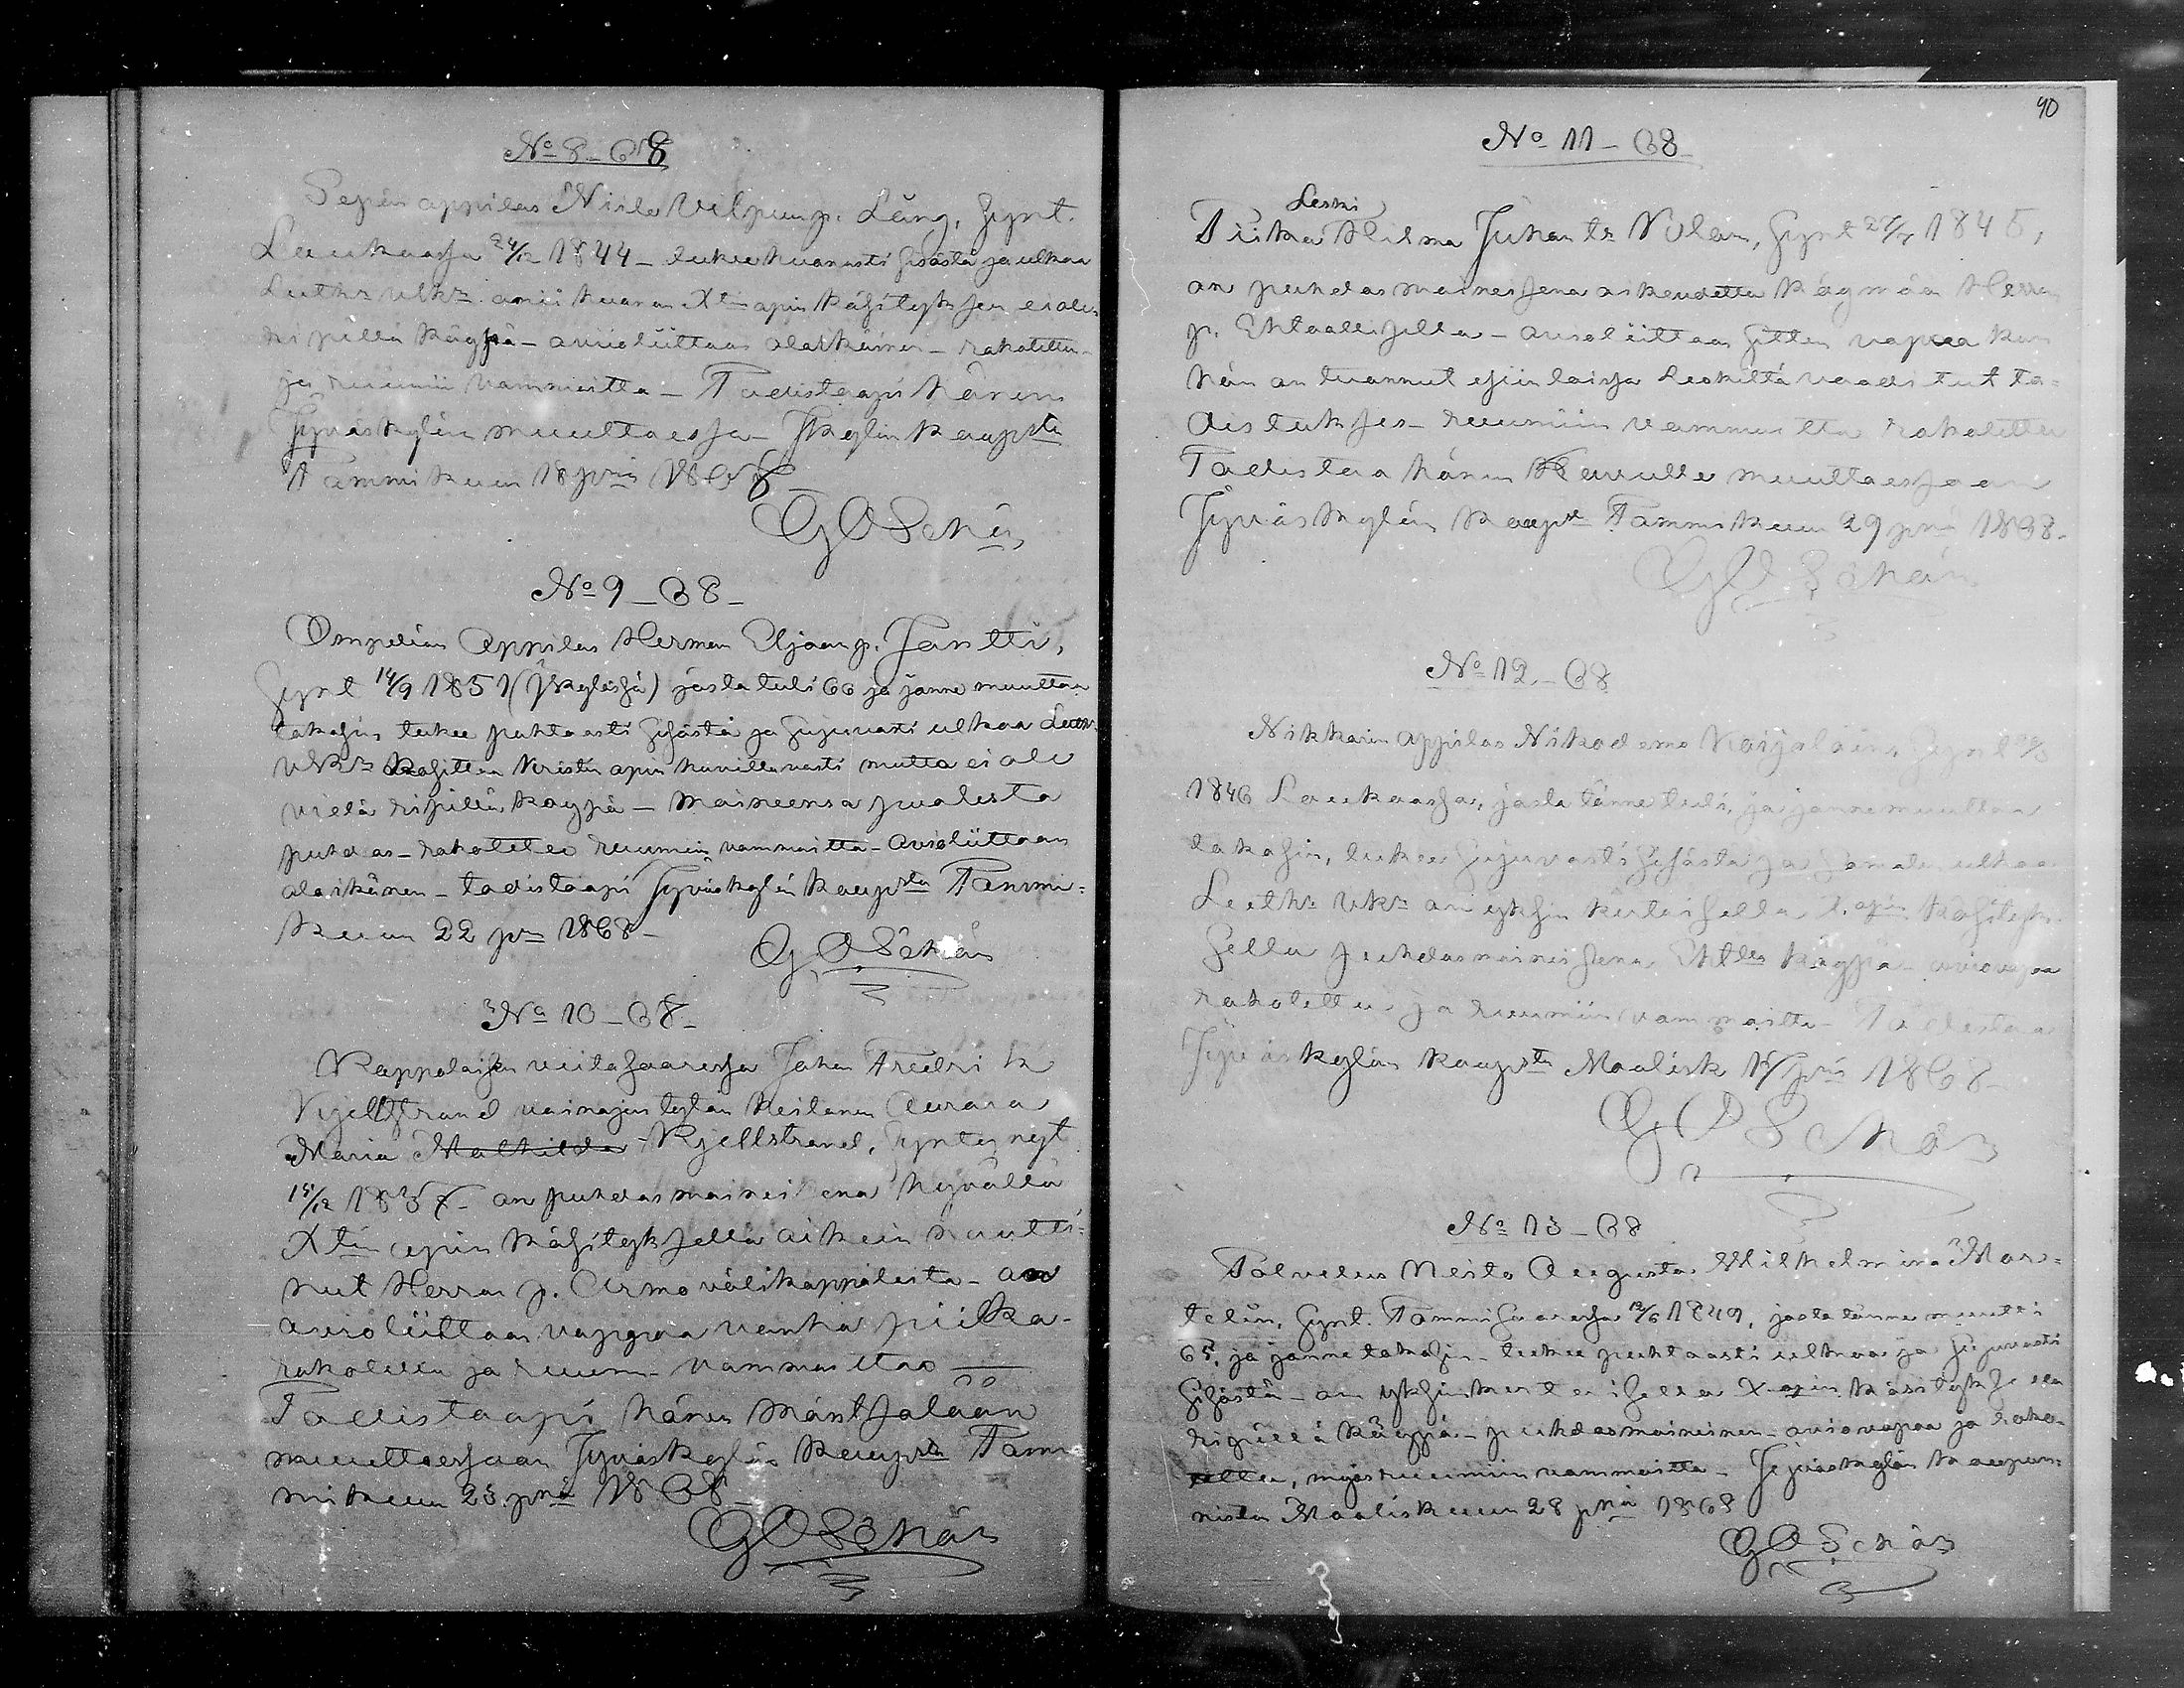 No 8-68
Sepän appilas Niilo Vilpunp. Läng, synt.
Laukaassa 24/12 1844 - lukee huonosti sisästä ja ulkoa
Luthr Vkr omii huonon Xtin opin käsityksen ei ole
ripillä käynyä - avioliittoon alaikäinen - rokotettu
ja ruumiin vammoitta - Todistaapi hänen
Jyväskylään muuttaessa - Jkylän kaupsta
Tammikuun 18 pnä 1868
G O Schön
No 9-68-
Ompelian Appilas Herman Eljaanp. Jantti,
synt 14/9 1851 (Jkylässä) josta tuli 66 ja jonne muuttaa
takasin lukee puhtaasti sisästä ja sujuvasti ulkoa Luth.
Vkr käsittää Kristin opin kovillavasti mutta ei ole
vielä ripillä käynyä - maineensa puolesta
puhdas - rokotettu ruumiin vammoitta - Avioliittoon
alaikänen - todistaapi Jyväskylän kaupsta Tammi=
kuun 22 pnä 1868 -
G, O Schön
No 10-68-
Kappalaisen viitasaaressa Johan Fredrik
Kjellstrand vainajan tytär Neitonen Aurora
Maria Mathilda Kjellstrand, syntynyt
15/12 1837 - on puhdasmaineisena hyvällä
Xtin opin käsityksellä oikein nautti=
nut Herran p. Armovälikappaleita - on
avioliittoon vapaa vanha piika -
rokotettu ja ruum. vammoitta -
Todistaapi hänen Mäntsälään
muuttaessaan Jyväskylän kaupsta Tam
mikuun 23 pnä 1868
G O Schön
90
No 11-68-
Leski
Piika Hilma Juhan tr Nolan, synt 27/7 1845,
on puhdasmaineisena oikeudetta käymään Herran
p. Ehtoollisella - avioliittoon sitten vapaa kun
hän on tuonnut esiin laissa Leskiltä vaaditut to=
distukset - ruumiin vammoitta rokotettu
Todistaa hänen Keuruulle muuttaessaan
Jyväskylän kaupsta Tammikuun 29 pnä 1868.
G O Schön
No 12-68
Nikkarin appilas Nikodemo Karjalain. synt
1846 Laukaassa, josta tänne tuli, ja jonne muuttaa
takasin, lukee sujuvasti sisästä ja samalla ulkoa
Luthr Vkr on yksinkertaisella X. opin käsityk.
sellä puhdasmaineisena Ehtlla käynyä - aviovapaa
rokotettu ja ruumiin vammoitta - Todistaa
Jyväskylän kaupsta Maalisk pnä 1868 -
G O Schön
No 13-68
Palvelus Neito Augusta Wilhelmina Mar=
telin, synt. Tammisaaressa 12/6 1849, josta tänne muutti
65, ja jonne takasin - lukee puhtaasti ulkoa ja sujuvasti
sisästä - on yksinkertaisella X-opin käsityksellä
ripillä käynyä - puhdasmaineinen - aviovapaa ja roko-
tettu, myös ruumiin vammoitta - Jyväskylän kaupun=
nista Maaliskuun 28 pnä 1868
G, O Schön